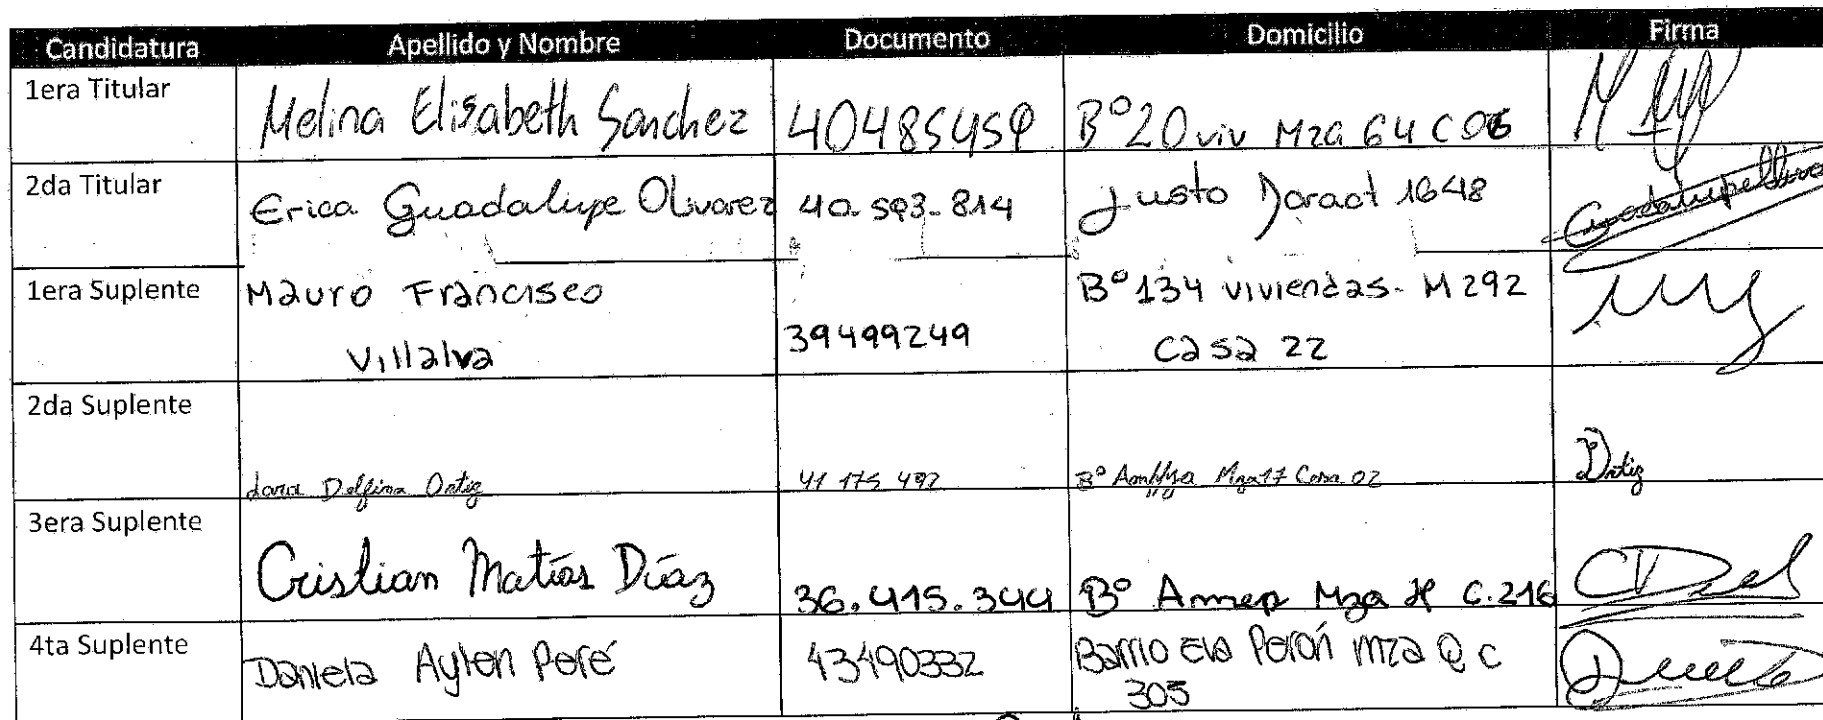 Candidatura Apellido y Nombre Documento Domicilio Firma
1era Titular Melina Elisabeth Sanchez 40485459 B° 20 viv Mza 64 C 06
2da Titular Erica Guadalupe Olivarez 40.593.814 Justo Daract 1648
1era Suplente Mauro Francisco B° 134 viviendas - M 292
Villalva 39499249 Casa 22
2da Suplente
Lara Delfina Ortiz 41 175 492 B° Mza 17 Casa 02 Ortiz
3era Suplente
Cristian Matías Díaz 36.415.344 B° Amep Mza H C.216
4ta Suplente Daniela Aylen Peré 43490332 Barrio Eva Perón mza Q C
305